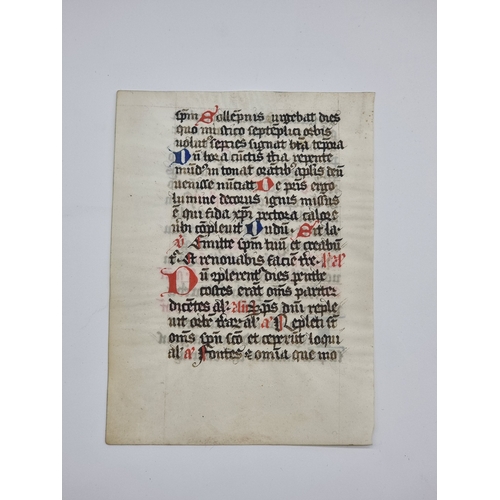 spm Sollepnis urgebat dies
quo mistico septeplici orbis
volut septies signat bta tepora
Du hora cuctis tcia repente
mud intonat oratib aplis deu
uenisse nuciat De pris ergo
lumine decorus ignis missus
e qui fida xpi pectora calore
ubi copleuit Dudu. Sit la.
v Emitte spm tuu et creabu
t. Et renouabis facie tre.
Du coplerent dies pente
costes erat oms pariter
dicetes al. sps dni reple
uit orbe trar. al. Repleti st
oms spu sco et ceperut loqui
al. Fontes et omia que mo